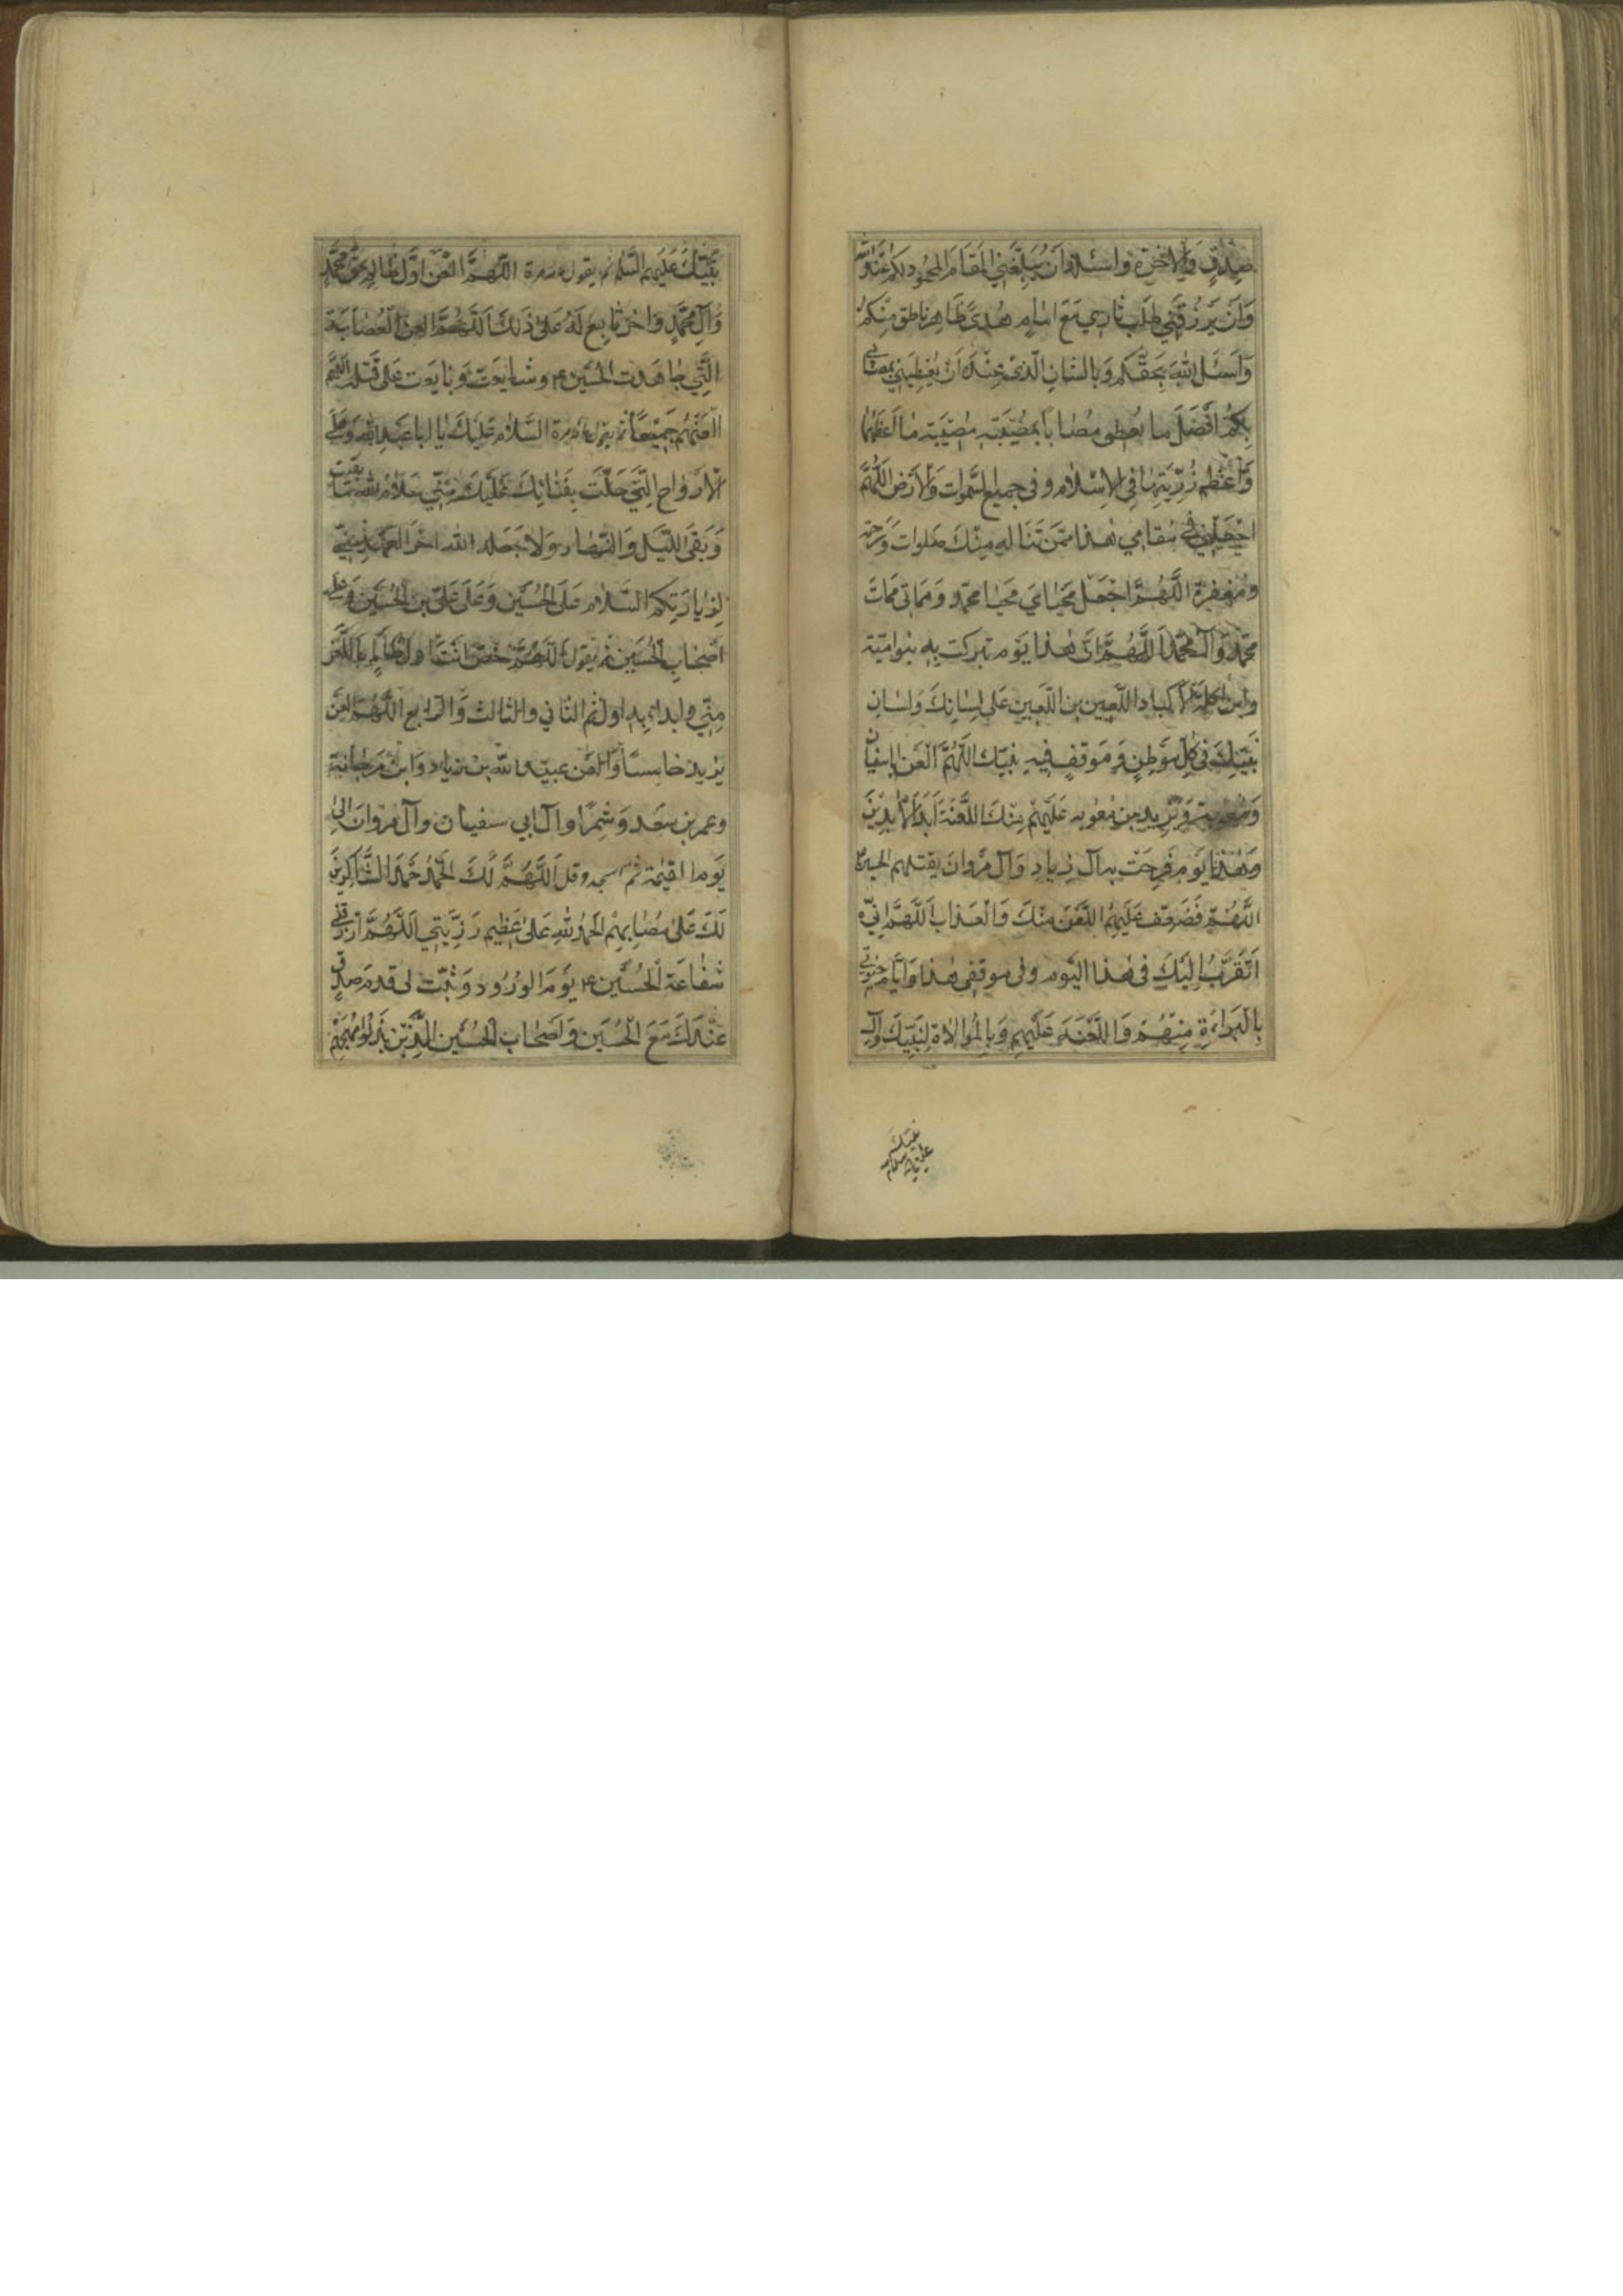 صِدْقٍ وَالاخرَة واسئله اَنْ يُبَلِّغَنِي المَقَامَ المحمُود لكم عِنْدَ الله
وَاَن يَرْزُقَنِي طَلَبَ ثاري مَعَ اِمٰامٍ هُدىً ظَاهِرٍ ناطِقٍ مِنْكُم
وَاَسئَلُ اللهَ بِحَقِّكم وَبالشانِ الّذى عِنْدَهُ اَنْ يُعْطِيَنِي بمصابي
بِكُمْ اَفْضَلَ ما يُعطى مُصٰابا بمُصيبَتِهِ مُصيبَة مٰا اَعْظَمَهٰا
وَاَعْظَمَ رَزِيَّتَهٰا فِي الاِسْلٰامِ وفى جميع السَّمٰوات وَالاَرضِ اللّهُمَّ
اجْعَلْنى فى مَقامي هٰذا مِمَّن تَنَالهُ مِنْكَ صَلوات وَرَحْمَة
ومَغْفِرَة اللَّهُمَّ اجْعَل مَحْيٰايَ مَحْيٰا محمّد ومَمَاتى مَمَاتَ
مُحمَّد وَآل مُحَمَّد اللَّهُمَّ اِنَّ هٰذا يَوْم تبركت بِهِ بَنو اميّة
وابن اكلة الاكباد اللَّعين بن اللَّعين عَلى لِسٰانِكَ وَلسٰانِ
نَبيّكَ فى كُلِّ مَوْطِنٍ وَمَوْقفٍ فيهِ نبيّك اللّهُمَّ الْعَن اباسفيان
وَمُعٰوية وَيَزيد بن مُعٰويه عَلَيْهِمْ مِنْكَ اللَّعْنَة اَبَدَ الاٰبِدينَ
وَهٰذا يَوْم فَرِحَتْ بِه آل زِيادٍ وَآل مَرْوانَ بقتلهم الحسين
اللّهُمَّ فَضَاعِف عَلَيْهِمُ اللَّعْنَ مِنْكَ وَالْعَذاب اَللَّهُمَّ اِنّى
اَتَقَرَّبُ اِلَيْكَ فى هٰذا اليَوم وفى مَوقفى هٰذا وَايّام حيوتى
بِالْبَراءَةِ مِنْهُمْ وَاللَّعْنَة عَلَيْهِم وَبِالمُوالاة لِنَبِيِّكَ وَآل
نبيّك
عليه السلام
نبيّكَ عَلَيْهِم السَّلم ثم يقول مرة اللّهُمَّ الْعَن اوَّل ظالم حق محمَّد
وَآلِ محمَّدٍ واٰخر تٰابِع لَهُ عَلىٰ ذٰلِكَ اَللّهُمَّ العن الْعِصٰابَة
الَّتى جٰاهَدت الحُسَين وشٰايَعَتْ وَبٰايَعَت عَلى قَتْله اللّهُمَّ
الْعَنْهُم جَميعًا ثم يقول مرة السَّلام عَلَيْكَ يٰا اباعَبدِ الله وَعَلى
الاَرْواحِ الَّتى حَلَّتْ بِفَنائِكَ عَلَيْكَ مِنّي سَلام الله مٰا بقيت
وَبَقىَ اللَّيْل وَالنَّهار وَلا جَعَلَه الله اخَر العَهد مِنّي
لِزيارَتِكم السَّلام عَلى الحُسَين وَعَلى عَلىّ بن الحُسَين وَعلى
اَصْحٰابِ الحُسَين ثم يقول اللّهُمَّ خصّ انتَ اول ظٰالِم باللَّعْن
مِنّي وابدا بِه اولا ثم الثّاني والثالث وَالرابع اللَّهُمَّ الْعَن
يَزيد خامِسًا وَالْعَن عبيد الله بن زياد وَابن مَرجانة
وعمر بن سَعد وَشِمْرًا وآل ابي سفيان وآل مَرْوان الىٰ
يَوم القيٰمة ثم سجد وقل اَللَّهُمَّ لَكَ الحَمْدُ حَمْدَ الشّٰاكِرينَ
لَكَ عَلىٰ مُصٰابِهِم الحَمْدُ للهِ عَلى عَظيم رَزِيَّتِي اَللَّهُمَّ ارْزقنى
شَفٰاعَة الْحُسَين يَوم الوُرُود وَثَبِّت لى قدم صِدقٍ
عِنْدكَ مَعَ الحُسَين وَاَصْحٰاب الحُسَين الَّذينَ بَذَلُوا مُهَجَهُمْ